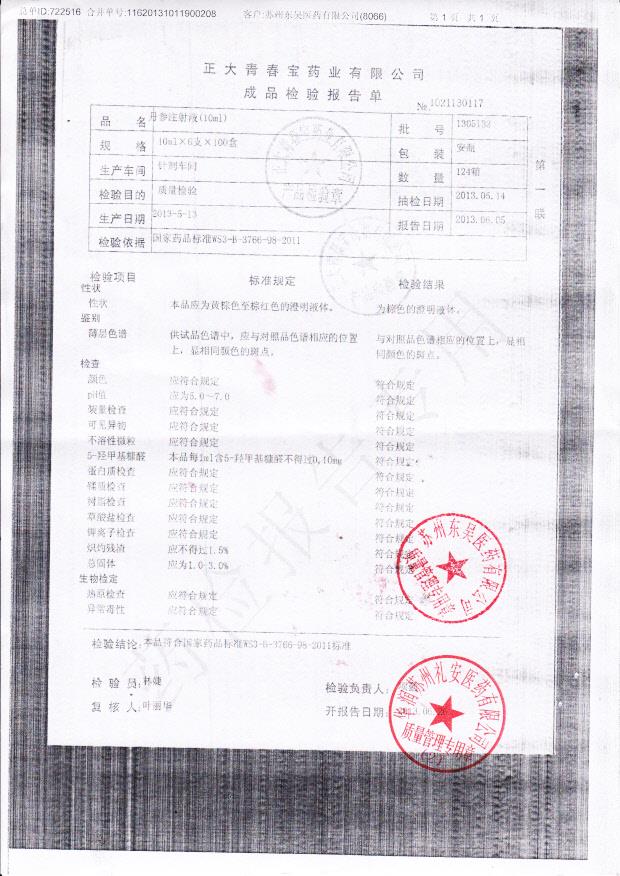 总单ID:722516 合并单号:11620131011900208 客户:苏州东吴医药有限公司(8066) 第 1 页 共 1 页
正大青春宝药业有限公司
成品检验报告单
№ 1021130117
品 名 丹参注射液(10ml) 批 号 1305132
规 格 10ml×6支×100盒 包 装 安瓿
生产车间 针剂车间 数 量 124箱
检验目的 质量检验 抽检日期 2013.05.14
生产日期 2013-5-13 报告日期 2013.06.05
检验依据 国家药品标准WS3-B-3766-98-2011
第一联
检验项目 标准规定 检验结果
性状
性状 本品应为黄棕色至棕红色的澄明液体。 为棕色的澄明液体。
鉴别
薄层色谱 供试品色谱中，应与对照品色谱相应的位置 与对照品色谱相应的位置上，显相
上，显相同颜色的斑点。 同颜色的斑点。
检查
颜色 应符合规定 符合规定
pH值 应为5.0~7.0 符合规定
装量检查 应符合规定 符合规定
可见异物 应符合规定 符合规定
不溶性微粒 应符合规定 符合规定
5-羟甲基糠醛 本品每1ml含5-羟甲基糠醛不得过0.10mg 符合规定
蛋白质检查 应符合规定 符合规定
鞣质检查 应符合规定 符合规定
树脂检查 应符合规定 符合规定
草酸盐检查 应符合规定 符合规定
钾离子检查 应符合规定 符合规定
炽灼残渣 应不得过1.5% 符合
总固体 应为1.0-3.0% 符合
生物检定
热原检查 应符合规定 符合规定
异常毒性 应符合规定 符合规定
苏州东吴医药有限公司
质量管理专用章
检验结论: 本品符合国家药品标准WS3-B-3766-98-2011标准
检 验 员: 林婕 检验负责人:
复 核 人: 叶丽华 开报告日期:
华润苏州礼安医药有限公司
质量管理专用章
(2)
药检报告专用